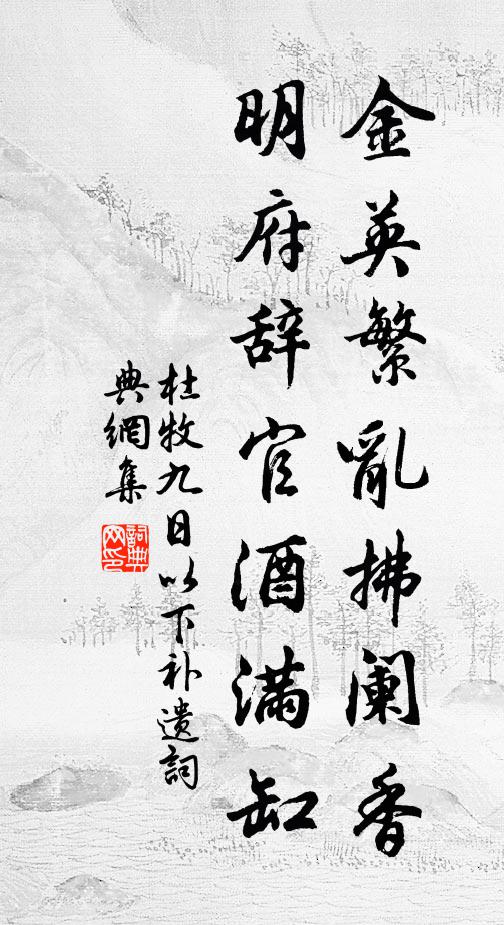 金英繁亂拂阑香
明府辞官酒满缸
杜牧九日以下补遗詞
典網集
詞典网印